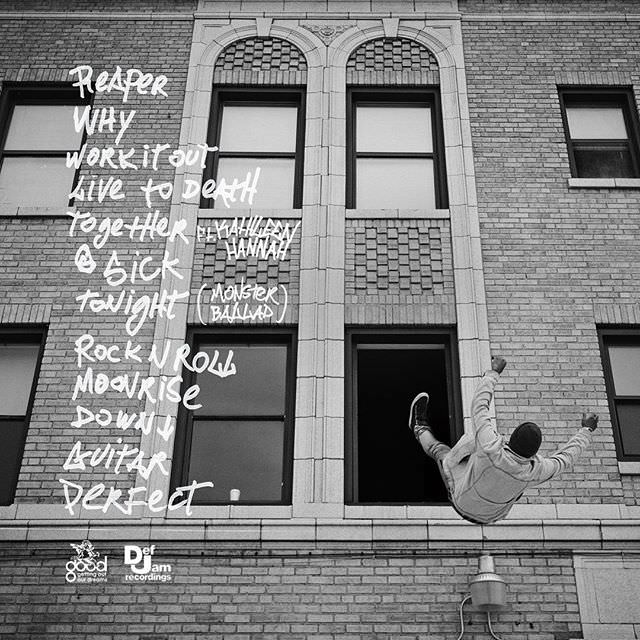 REAPER
WHY
WORK IT OUT
LIVE TO DEATH
TOGETHER Ft. KATHLEEN
HANNAH
@ SICK
TONIGHT (MONSTER
BALLAD)
ROCK N ROLL
MOONRISE
DOWN ↓
GUITAR
PERFECT
good
getting out
our dreams
Def
Jam
recordings